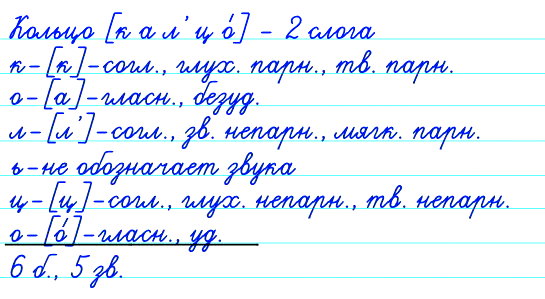 Кольцо [к а л’ ц о́] – 2 слога
к–[к]–согл., глух. парн., тв. парн.
о–[а]–гласн., безуд.
л–[л’]–согл., зв. непарн., мягк. парн.
ь–не обозначает звука
ц–[ц]–согл., глух. непарн., тв. непарн.
о–[о́]–гласн., уд.
6 б., 5 зв.